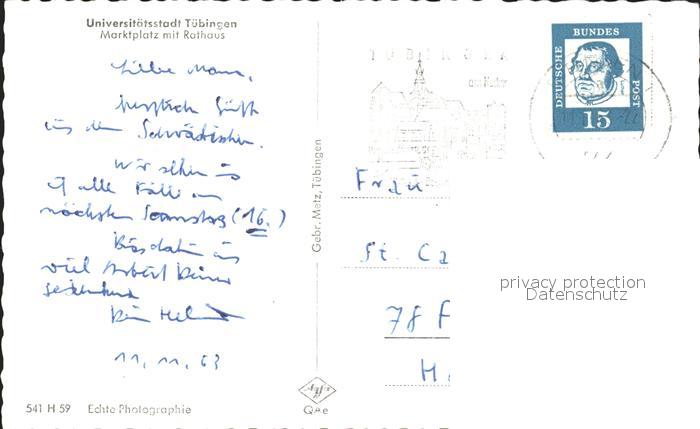 Universitätsstadt Tübingen
Marktplatz mit Rathaus
Liebe Mama,
herzlich Grüße
aus dem Schwäbischen.
Wir sehen uns
auf alle Fälle am
nächsten Samstag (16.)
Bis dahin
viel Arbeit
Dein
11. 11. 63
541 H 59 Echte Photographie
Gebr. Metz, Tübingen
Agfa
am Neckar
DEUTSCHE BUNDES POST
15
Frau
St.
78 F
H
privacy protection
Datenschutz